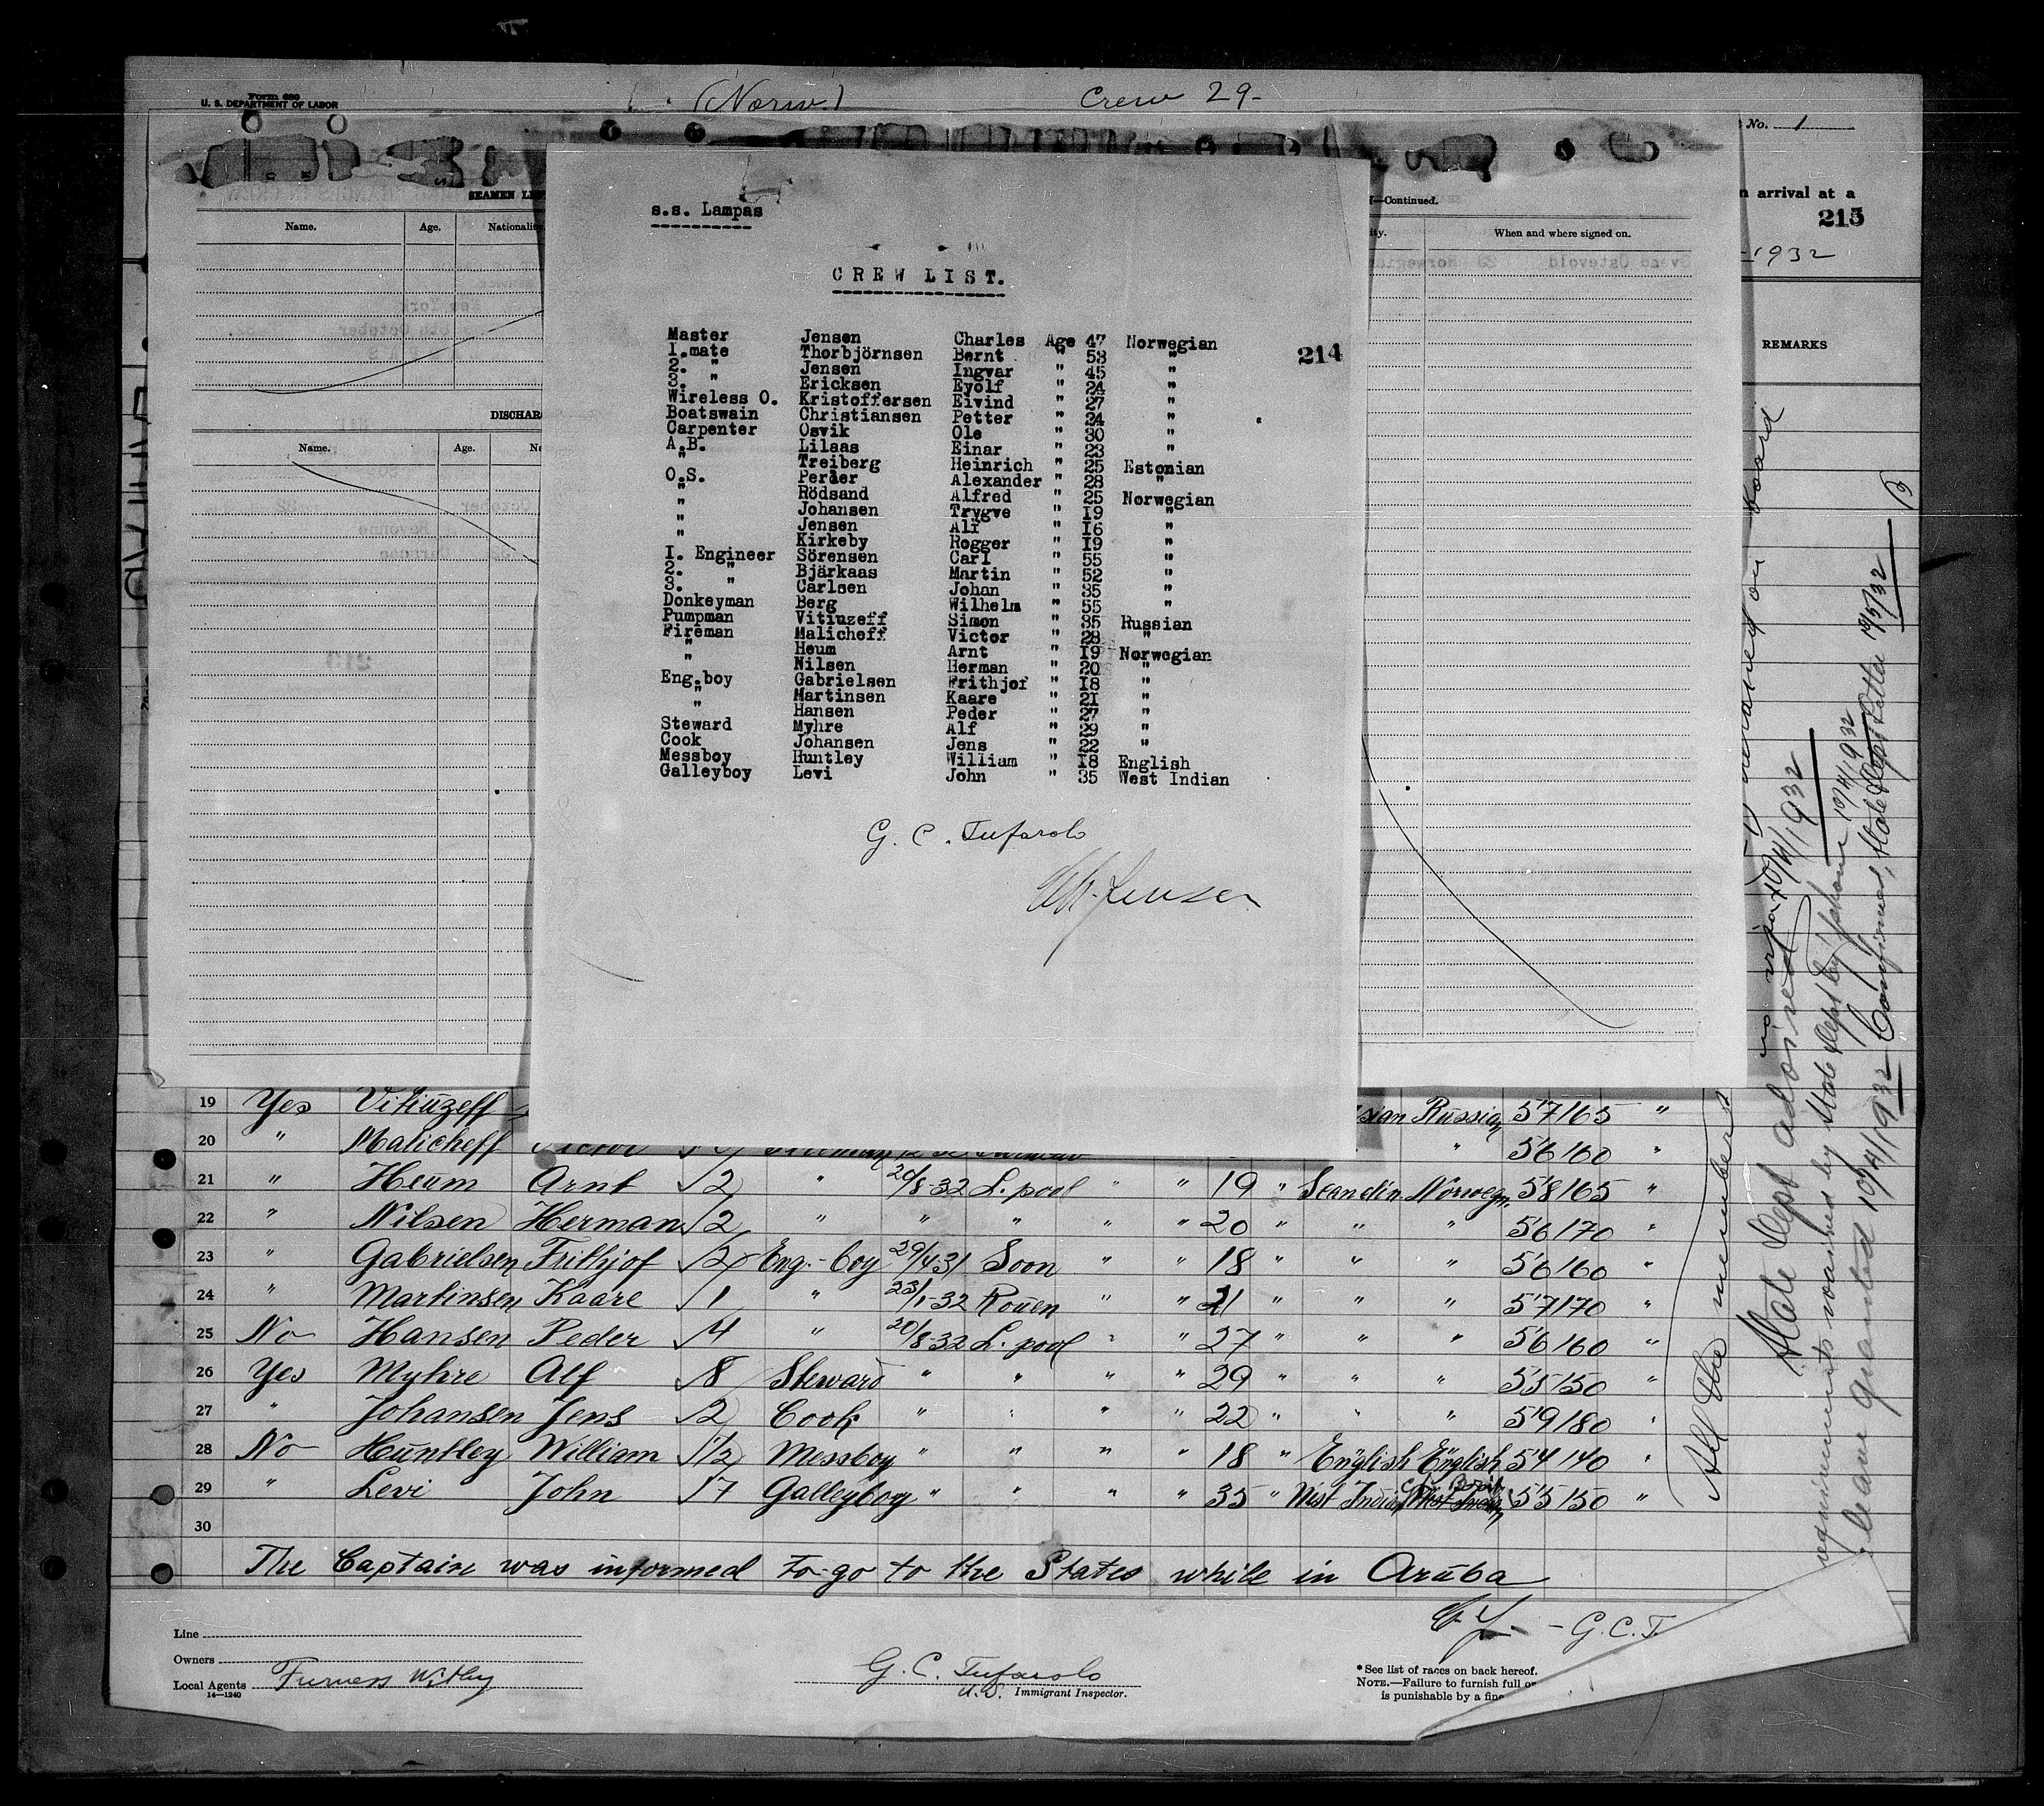 Form 680
U. S. DEPARTMENT OF LABOR
(Norw.)
Crew 29-
No. 1
n arrival at a
215
-1932
REMARKS
SEAMEN
Name. Age. Nationalit
DISCHAR
Name. Age. Na
—Continued.
ity. When and where signed on.
s.s. Lampas
CREW LIST.
214
Master Jensen Charles Age 47 Norwegian
I.mate Thorbjörnsen Bernt " 53 "
2. " Jensen Ingvar " 45 "
3. " Ericksen Eyolf " 24 "
Wireless O. Kristoffersen Eivind " 27 "
Boatswain Christiansen Petter " 24 "
Carpenter Osvik Ole " 30 "
A.B. Lilaas Einar " 23 "
" Treiberg Heinrich " 25 Estonian
O.S. Perler Alexander " 28 "
" Rödsand Alfred " 25 Norwegian
" Johansen Trygve " I9 "
" Jensen Alf " I6 "
" Kirkeby Rogger " I9 "
I. Engineer Sörensen Carl " 55 "
2. " Bjärkaas Martin " 52 "
3. " Carlsen Johan " 35 "
Donkeyman Berg Wilhelm " 55 "
Pumpman Vitiuzeff Simon " 35 Russian
Fireman Malicheff Victor " 28 "
" Heum Arnt " I9 Norwegian
" Nilsen Herman " 20 "
Eng.boy Gabrielsen Frithjof " I8 "
" Martinsen Kaare " 2I "
" Hansen Peder " 27 "
Steward Myhre Alf " 29 "
Cook Johansen Jens " 22 "
Messboy Huntley William " I8 English
Galleyboy Levi John " 35 West Indian
G. C. Tufarolo
Ch. Jensen
19 Yes Vitiuzeff sian Russian 5'7 165 "
20 " Malicheff " 5'6 160 "
21 " Heum Arnt √2 " 20/8-32 L.pool " " 19 " Scandin. Norweg. 5'8 165 "
22 " Nilsen Herman √2 " " " " " 20 " " " 5'6 170 "
23 " Gabrielsen Frithjof √2 Eng.-boy 29/4-31 Soon " " 18 " " " 5'6 160 "
24 " Martinsen Kaare √1 " 23/1-32 Rouen " " 21 " " " 5'7 170 "
25 No Hansen Peder √4 " 20/8-32 L.pool " " 27 " " " 5'6 160 "
26 Yes Myhre Alf √8 Steward " " " " 29 " " " 5'5 150 "
27 " Johansen Jens √2 Cook " " " " 22 " " " 5'9 180 "
28 No Huntley William √1½ Messboy " " " " 18 " English English 5'4 140 "
29 " Levi John √7 Galleyboy " " " " 35 " West Indian Brit. West Indian 5'5 150 "
30
The Captain was informed to go to the States while in Aruba
C. J. - G. C. T.
All the members remained on board
State Dept advised 10/4/1932
requirements waived by State Dept by 'phone 10/4/1932
leave granted 10/4/1932 Confirmed, State Dept Letter 10/5/32
Line
Owners
Local Agents Furness Withy
14—1240
G. C. Tufarolo
U.S. Immigrant Inspector.
* See list of races on back hereof.
NOTE.—Failure to furnish full or
is punishable by a fine